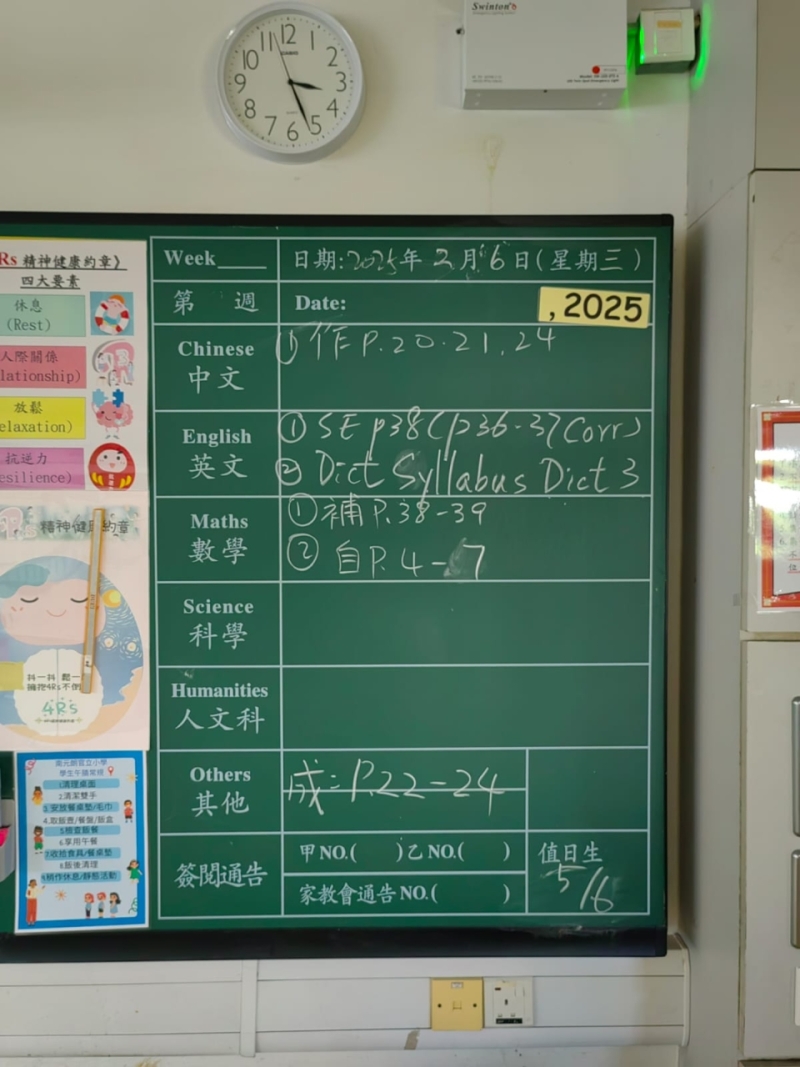 12 1 2 3 4 5 6 7 8 9 10 11
CASIO
Swinton
Rs 精神健康約章》
四大要素
休息
(Rest)
人際關係
lationship)
放鬆
elaxation)
抗逆力
esilience)
精神健康約章
抖一抖 鬆一
擁抱4Rs不倒
4Rs
南元朗官立小學
學生午膳常規
1清理桌面
2.清潔雙手
3.安放餐桌墊/毛巾
4.取飯壺/餐盤/飯盒
5檢查飯餐
6.享用午餐
7.收拾食具/餐桌墊
8.飯後清理
9稍作休息/靜態活動
Week____ 日期:2025年2月6日(星期三)
第 週 Date: , 2025
Chinese
中文
① 作 P.20.21.24
English
英文
① SE p38(p36-37 Corr)
② Dict Syllabus Dict 3
Maths
數學
① 補 P.38-39
② 自 P.4-7
Science
科學
Humanities
人文科
Others
其他
成: P.22-24
簽閱通告
甲NO.( )乙NO.( )
家教會通告NO.( )
值日生
5/6